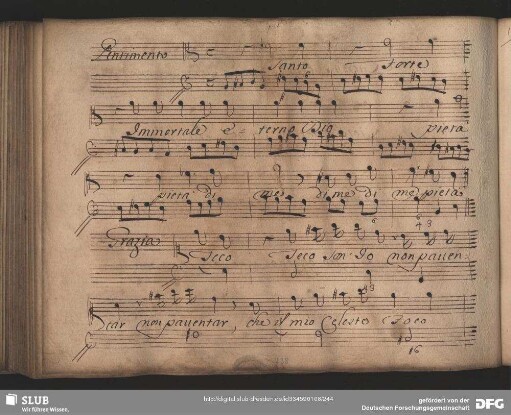 Pentimento
Santo Forte
Immortale e-terno Dio pietà
pietà di me di me di me pietà
Grazia
Teco Teco son Io non paven
tar non paventar, che il mio Celeste Foco
16
SLUB
Wir führen Wissen.
gefördert von der
Deutschen Forschungsgemeinschaft
DFG